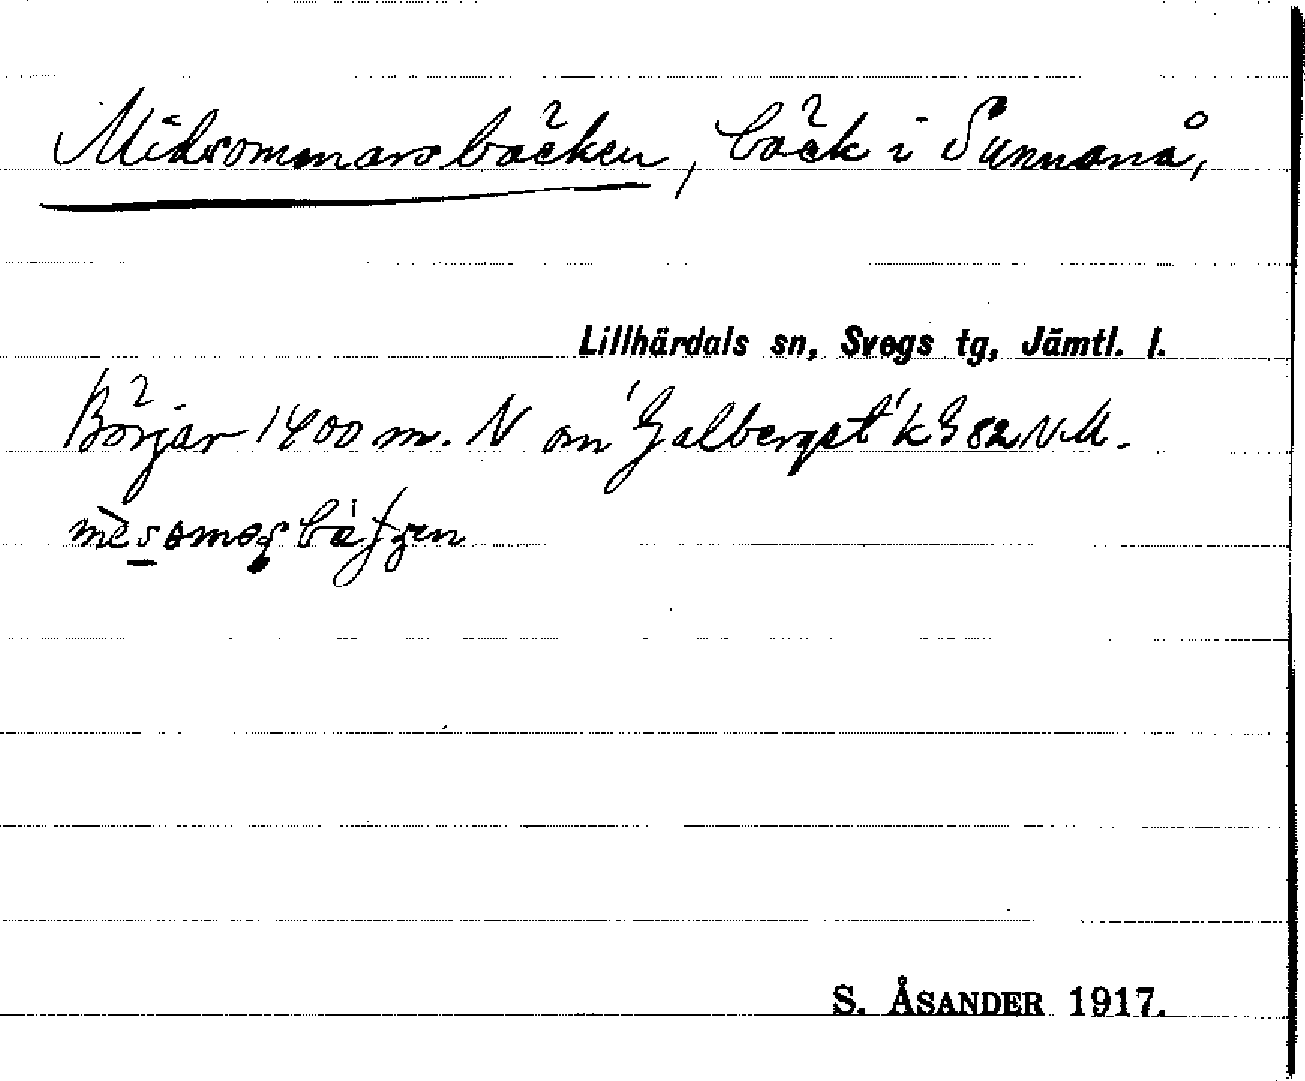 Midsommarsbäcken, bäck i Sunnanå,
Lillhärdals sn, Svegs tg, Jämtl. l.
Börjar 1400 m. N om 'Galbergst' k G 82 N.M.
S. ÅSANDER 1917.